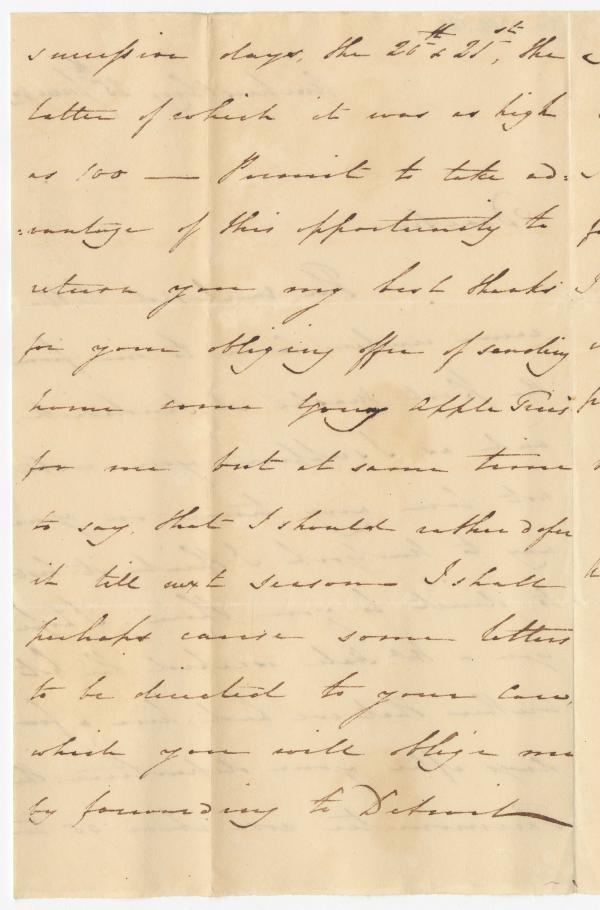 successive days, the 20th & 21st, the
latter of which it was as high
as 100 — Permit to take ad=
=vantage of this opportunity to
return you my best thanks
for your obliging offer of sending
home some young apple Trees
for me but at same time
to say, that I should rather defer
it till next season — I shall
perhaps cause some letters
to be directed to your care,
which you will oblige me
by forwarding to Detroit